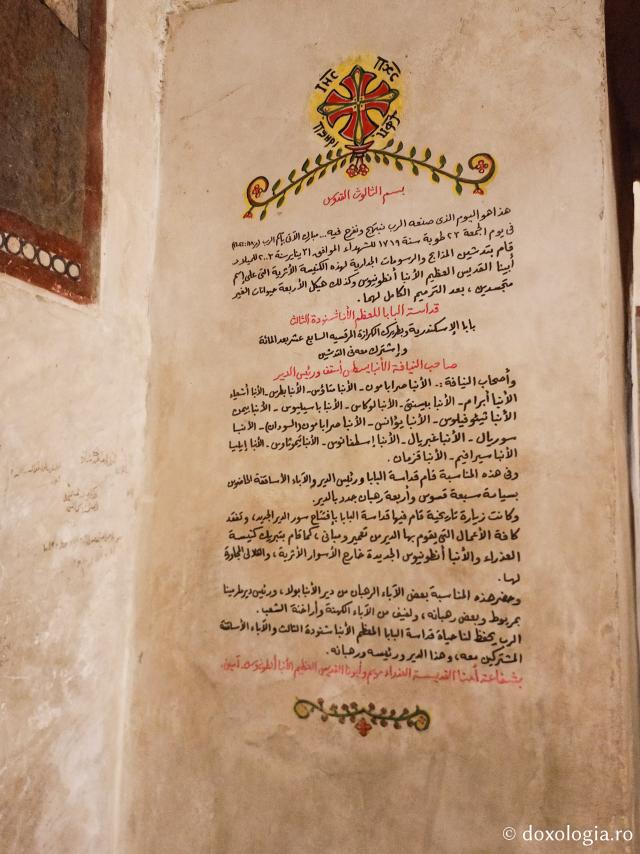 ⲒⲎⲤ ⲠⲬⲤ
ⲠϢⲎⲢⲒ ⲘⲪϮ
بسم الثالوث القدوس
هذا هو اليوم الذى صنعه الرب نبتهج ونفرح فيه... مبارك الآتى بأسم الرب
فى يوم الجمعة ٢٣ طوبة سنة ١٧١٩ للشهداء الموافق ٣١ يناير سنة ٢٠٠٣ للميلاد
قام بتدشين المذابح والرسومات الجدارية لهذه الكنيسة الأثرية التى على إسم
أبينا القديس العظيم الأنبا أنطونيوس وكذلك هيكل الأربعة حيوانات الغير
متجسدين، بعد الترميم الكامل لهما.
قداسة البابا المعظم الأنبا شنودة الثالث
بابا الإسكندرية وبطريرك الكرازة المرقسية السابع عشر بعد المائة
وإشترك معه فى التدشين
صاحب النيافة الأنبا يسطس أسقف ورئيس الدير
وأصحاب النيافة :ـ الأنبا صرابامون ـ الأنبا متاؤس ـ الأنبا بطرس ـ الأنبا أشعياء
الأنبا أبرام ـ الأنبا بيسنتى ـ الأنبا لوكاس ـ الأنبا باسيليوس ـ الأنبا بيمن
الأنبا ثيئوفيلوس ـ الأنبا يؤانس ـ الأنبا صرابامون (السودان) ـ الأنبا
سوريال ـ الأنبا غبريال ـ الأنبا إسطفانوس ـ الأنبا تيموثاوس ـ الأنبا إيليا
الأنبا سيرافيم ـ الأنبا قزمان.
وفى هذه المناسبة قام قداسة البابا ورئيس الدير والآباء الأساقفة الحاضرين
بسيامة سبعة قسوس وأربعة رهبان جدد بالدير.
وكانت زيارة تاريخية قام فيها قداسة البابا بإفتتاح سور الدير الجديد، وتفقد
كافة الأعمال التى يقوم بها الدير من تعمير ومبانى، كما قام بتبريك كنيسة
العذراء والأنبا أنطونيوس الجديدة خارج الأسوار الأثرية، والقلالى المجاورة
لها.
وحضر هذه المناسبة بعض الآباء الرهبان من دير الأنبا بولا، ورئيس دير مارمينا
بمريوط وبعض رهبانه، ولفيف من الآباء الكهنة وأراخنة الشعب.
الرب يحفظ لنا حياة قداسة البابا المعظم الأنبا شنودة الثالث والآباء الأساقفة
المشتركين معه، وهذا الدير ورئيسه ورهبانه.
بشفاعة أمنا القديسة العذراء مريم وأبونا القديس العظيم الأنبا أنطونيوس. آمين.
© doxologia.ro